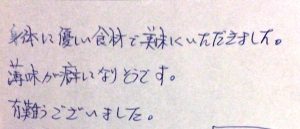 身体に優しい食材で美味しくいただきました。
薄味が癖になりそうです。
有難うございました。